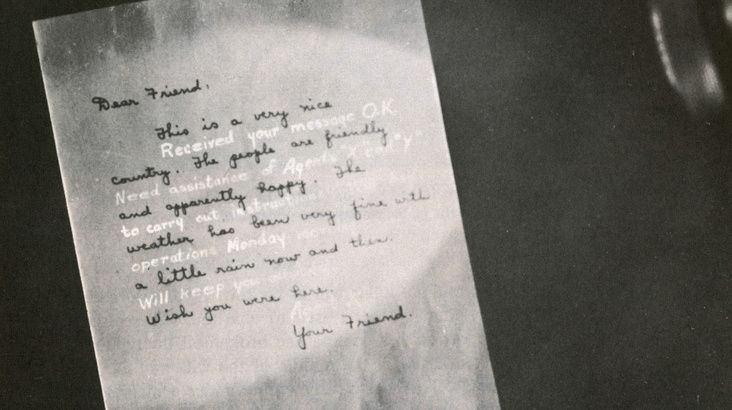 Dear Friend,
This is a very nice
Received your message O.K.
country. The people are friendly
Need assistance of Agents "X" and "Y"
and apparently happy. The
to carry out instructions
weather has been very fine with
operations Monday
a little rain now and then.
Will keep you
Wish you were here.
Your Friend.